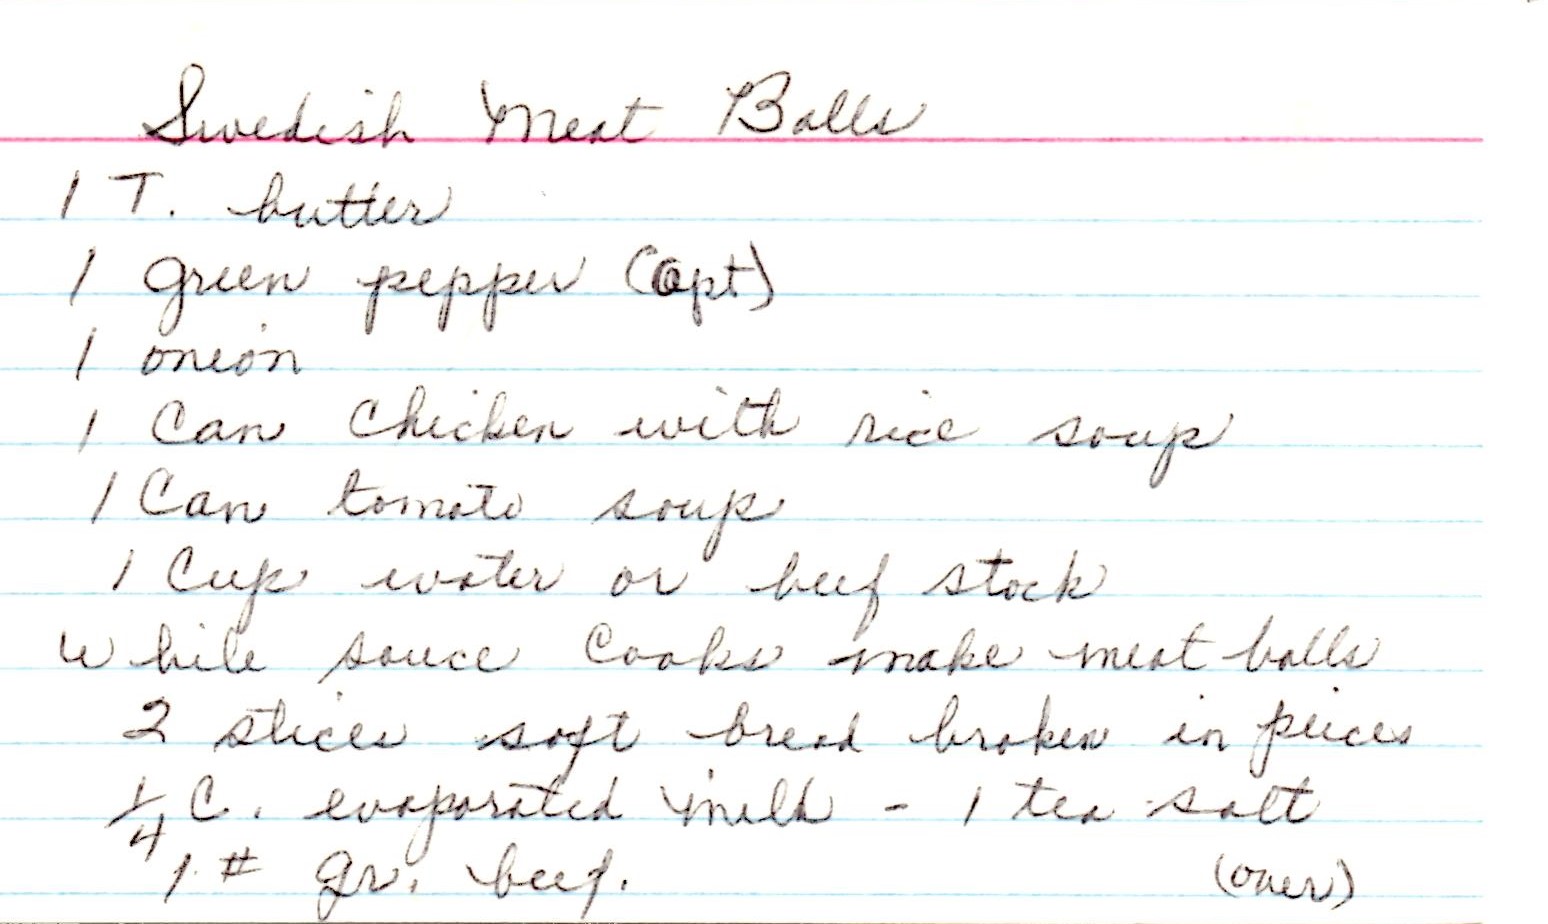 Swedish Meat Balls
1 T. butter
1 green pepper (opt)
1 onion
1 Can Chicken with rice soup
1 Can tomato soup
1 Cup water or beef stock
While sauce Cooks make meat balls
2 slices soft bread broken in peices
1/4 C. evaporated milk - 1 tea salt
1 # gr. beef. (over)